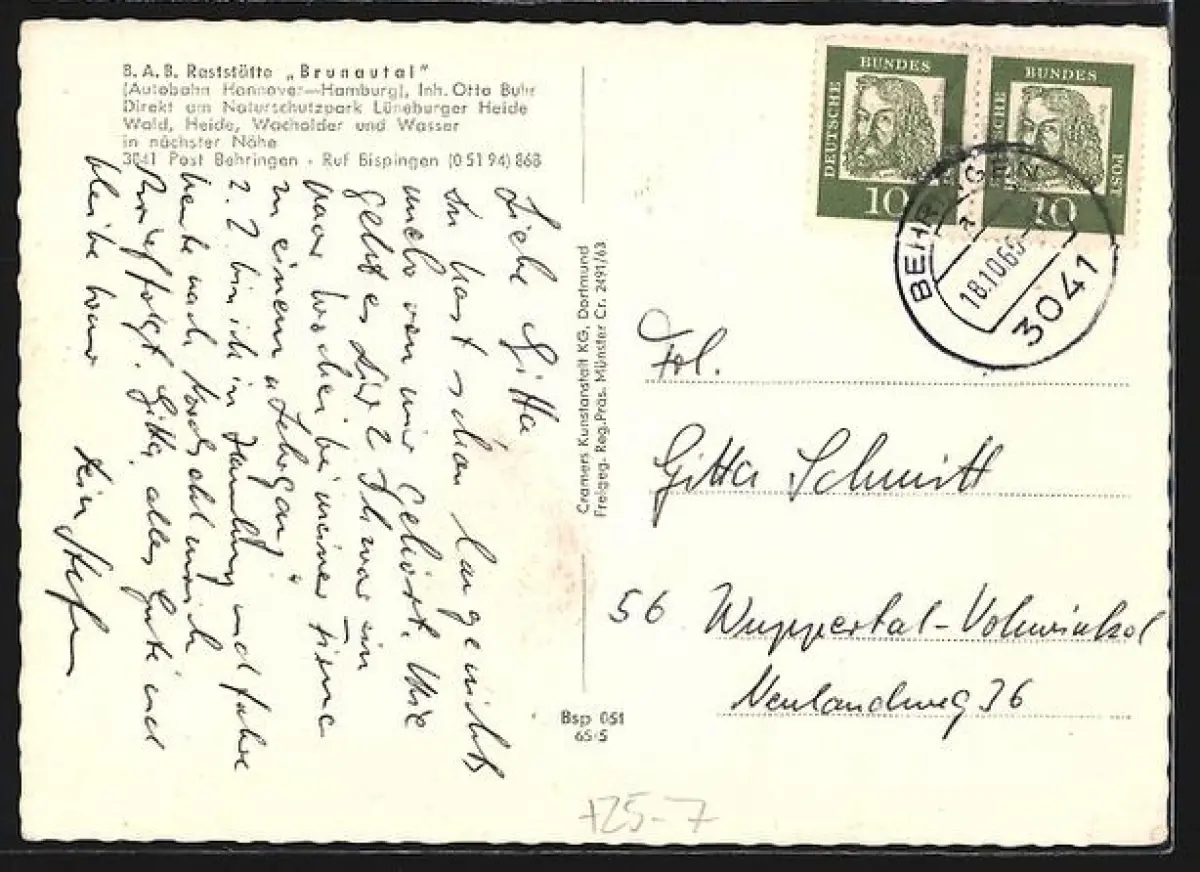 B. A. B. Raststätte „Brunautal"
(Autobahn Hannover—Hamburg), Inh. Otto Buhr
Direkt am Naturschutzpark Lüneburger Heide
Wald, Heide, Wacholder und Wasser
in nächster Nähe
3041 Post Behringen · Ruf Bispingen (0 51 94) 868
Liebe Gitta
Du hast schon lange nichts
mehr von mir gehört. Wie
geht es Dir? Ich war ein
paar Wochen bei meiner Firma
zu einem „Lehrgang"
z. Z. bin ich in Hamburg und fahre
heute nach
Brief folgt. Gitta, alles Gute und
bleibe brav
Dein Stefan
Cramers Kunstanstalt KG, Dortmund
Freigeg. Reg.Präs. Münster Cr. 2491/63
Bsp 051
65/5
DEUTSCHE BUNDES POST
10
DEUTSCHE BUNDES POST
10
BEHRINGEN
18.10.66
3041
Frl.
Gitta Schmitt
56 Wuppertal-Vohwinkel
Neulandweg 36
+25-7